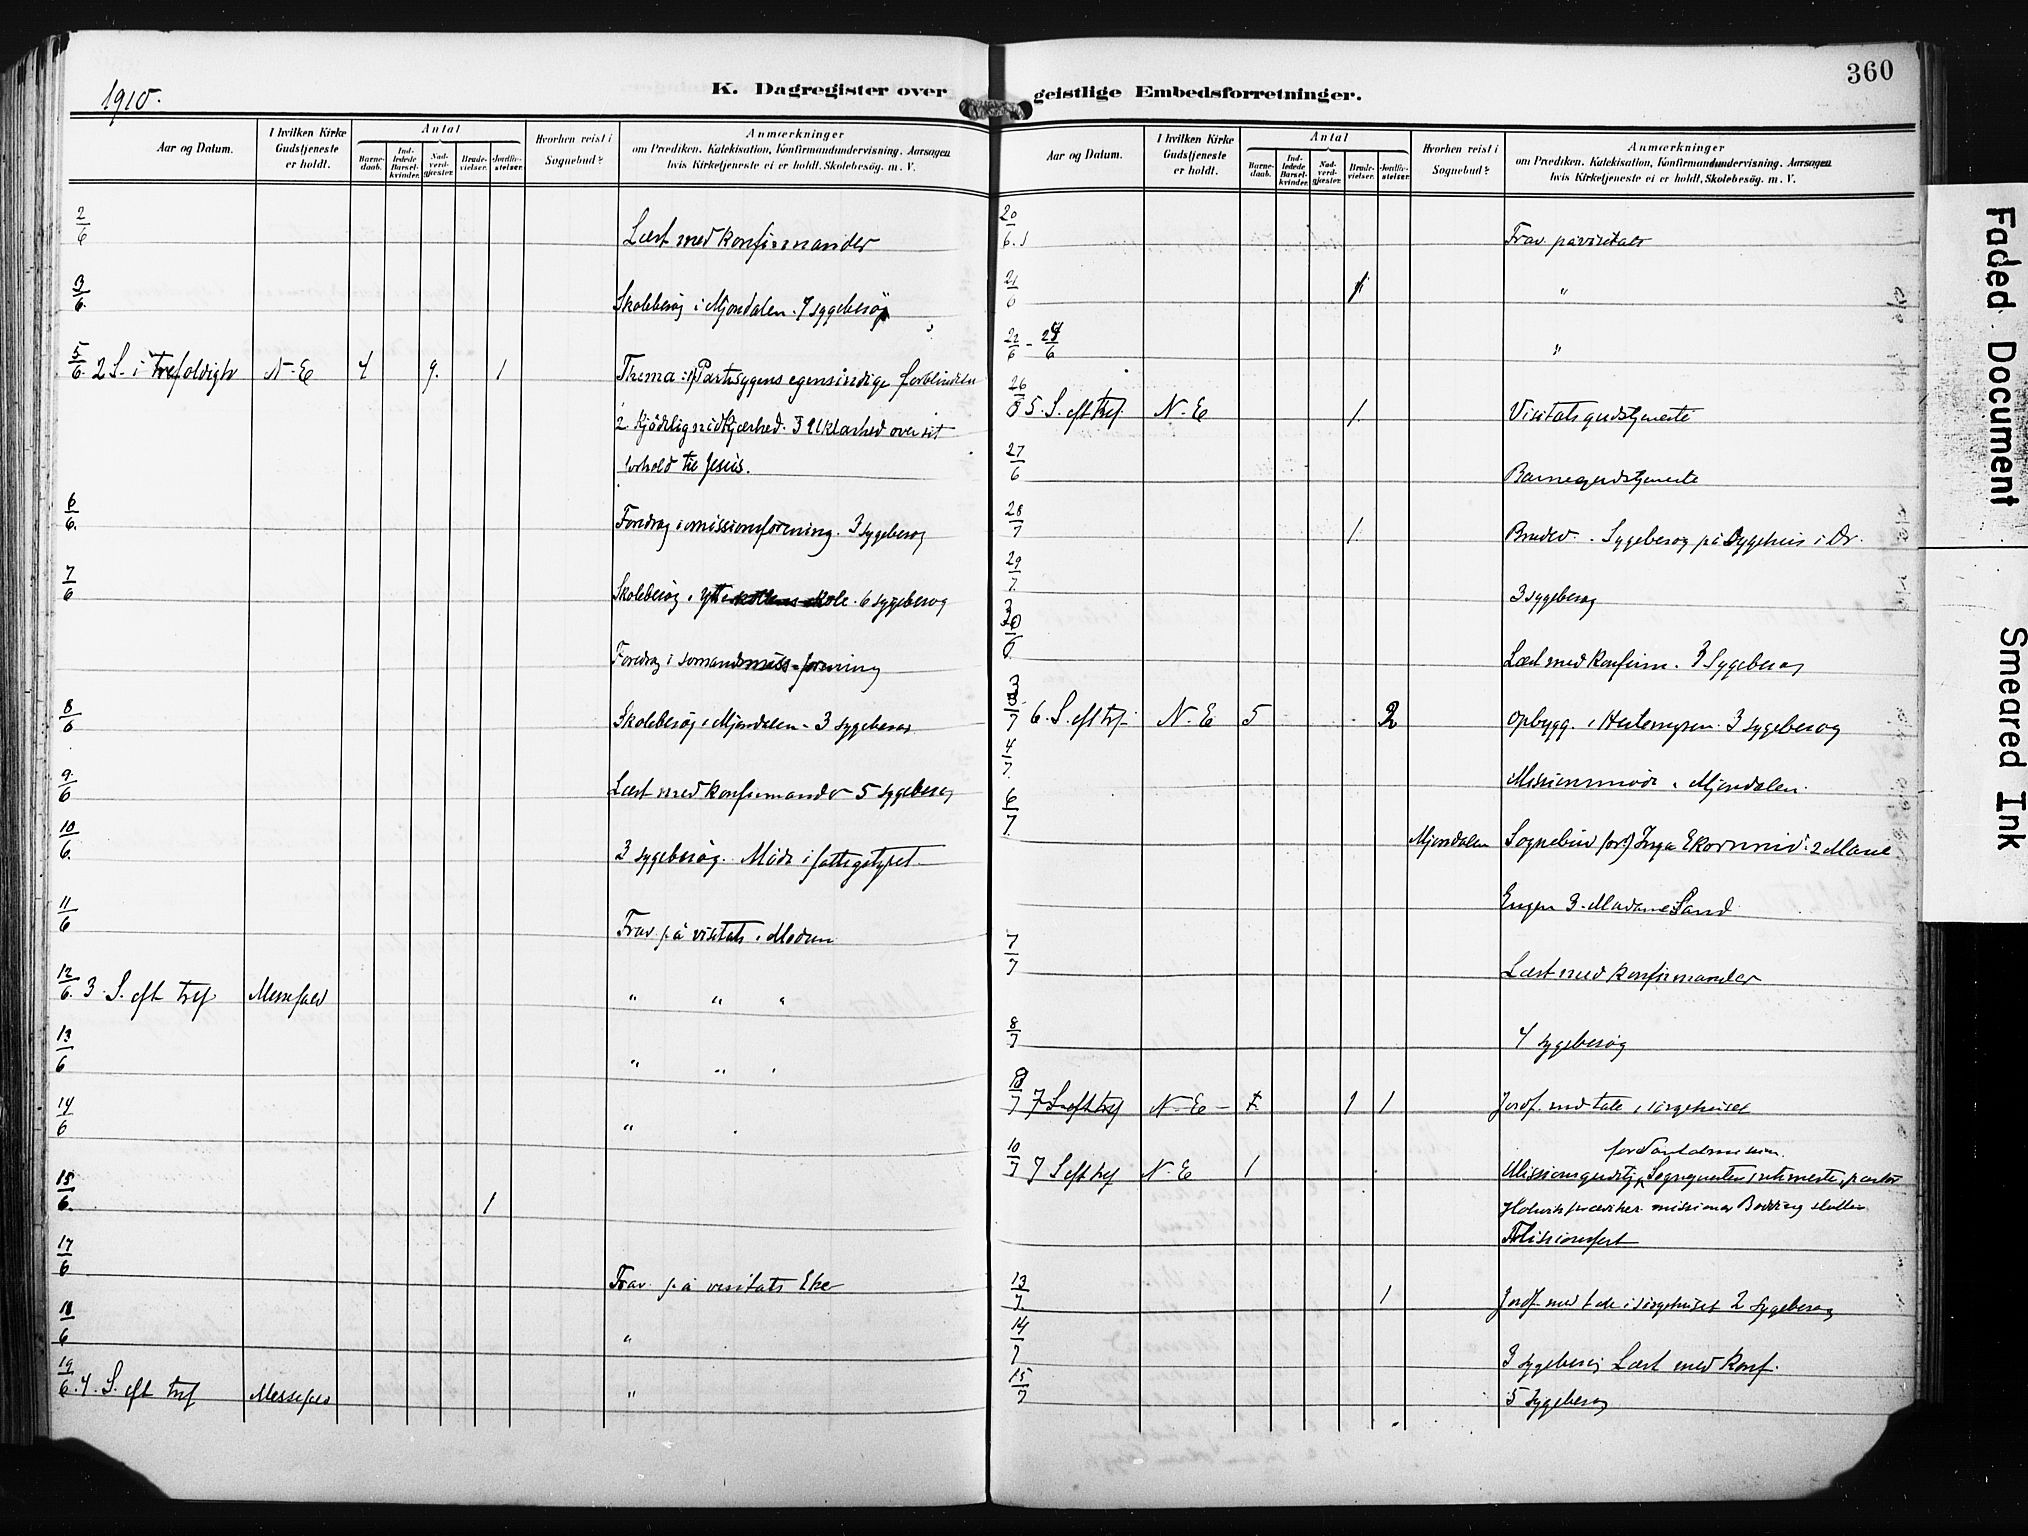 1910.
K. Dagregister over
Aar og Datum. I hvilken Kirke Gudstjeneste er holdt. Antal Barnedaab. Indledede Barselkvinder. Nadverdgjæster. Brudevielser. Jordfæstelser. Hvorhen reist i Sognebud? Anmærkninger om Prædiken, Katekisation, Konfirmandundervisning, Aarsagen hvis Kirketjeneste ei er holdt, Skolebesög m. V.
2/6 Læst med konfirmander
3/6. Skolebesøg i Mjøndalen. 7 sygebesøg
5/6. 2 S. i trefoldigh N-E 4 9. 1 Thema: 1) Partisygens egensindige forblindelse
2 Kjødelig nidkjærhed. 3 Uklarhed over sit
forhold til Jesus.
6/6. Foredrag i missionsforening. 3 sygebesøg
7/6 Skolebesøg i skole. 6 sygebesøg
Foredrag i sømandsmiss-forening
8/6 Skolebesøg i Mjøndalen - 3 sygebesøg
9/6 Læst med konfirmander 5 sygebesøg
10/6. 3 sygebesøg. Møde i fattigstyret
11/6 Frav. på visitats i Modum
12/6. 3. S. eft tref. Messefald " " "
13/6 " " "
14/6 "
15/6. 1
17/6 Frav. på visitats Eker
18/6 "
19/6. 4. S. eft tref Messefald "
360
geistlige Embedsforretninger.
Aar og Datum. I hvilken Kirke Gudstjeneste er holdt. Antal Barnedaab. Indledede Barselkvinder. Nadverdgjæster. Brudevielser. Jordfæstelser. Hvorhen reist i Sognebud? Anmærkninger om Prædiken, Katekisation, Konfirmandundervisning, Aarsagen hvis Kirketjeneste ei er holdt, Skolebesög m. V.
20/6. Frav på visitats
21/6 1 "
22/6 - 24/6 "
26/6 5. S. eft tref. N-E 1. Visitatsgudstjeneste
27/6 Barnegudstjeneste
28/7 1. Brudev. Sygebesøg på Sygehus i Dr.
29/7. 3 sygebesøg
30/6. Læst med konfirm. 3 Sygebesøg
3/7 6. S. eft tref. N-E 5 2 Opbygg. i Hestemyren. 3 sygebesøg
4/7. Missionsmøde i Mjøndalen.
6/7. Mjøndalen Sognebud for 1) Inga 2 Marie
Engen 3. Madame Sand
7/7 Læst med konfirmander
8/7 4 sygebesøg
7 S eft tref N-E- 1 1 Jordf. med tale i sørgehuset
for Santalmission.
10/7 7 S eft tref N-E 1 Missionsgudstj. Sognepresten pastor
prædiker. missionær Bodding slutter
Missionsfest
13/7. 1 Jordf. med tale i sørgehuset 2 sygebesøg
14/7 3 sygebesøg Læst med konf.
15/7 5 sygebesøg
Faded Document
Smeared Ink